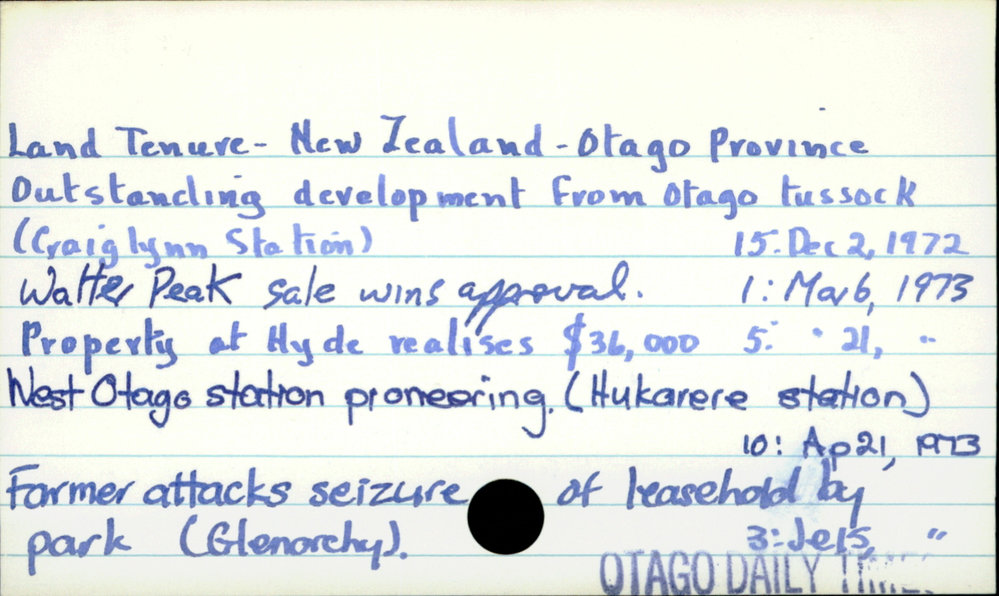 Land Tenure - New Zealand - Otago Province
Outstanding development from Otago tussock
(Craiglynn Station) 15: Dec 2, 1972
Walter Peak sale wins approval. 1: Mar 6, 1973
Property at Hyde realises $36,000 5: " 21, "
West Otago station pioneering. (Hukarere station)
10: Ap 21, 1973
Farmer attacks seizure of leasehold by
park (Glenorchy). 3: Je 15, "
OTAGO DAILY TIMES